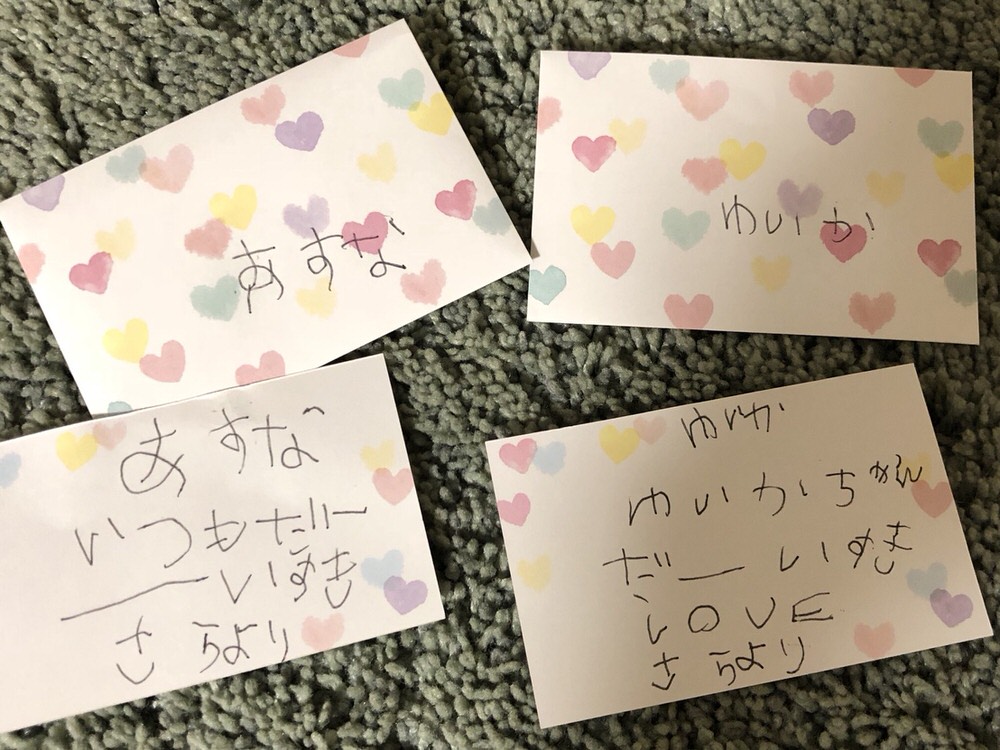 あすな
ゆいか
あすな
いつもだー
ーいすき
さらより
ゆいか
ゆいかちゃん
だーいすき
LOVE
さらより